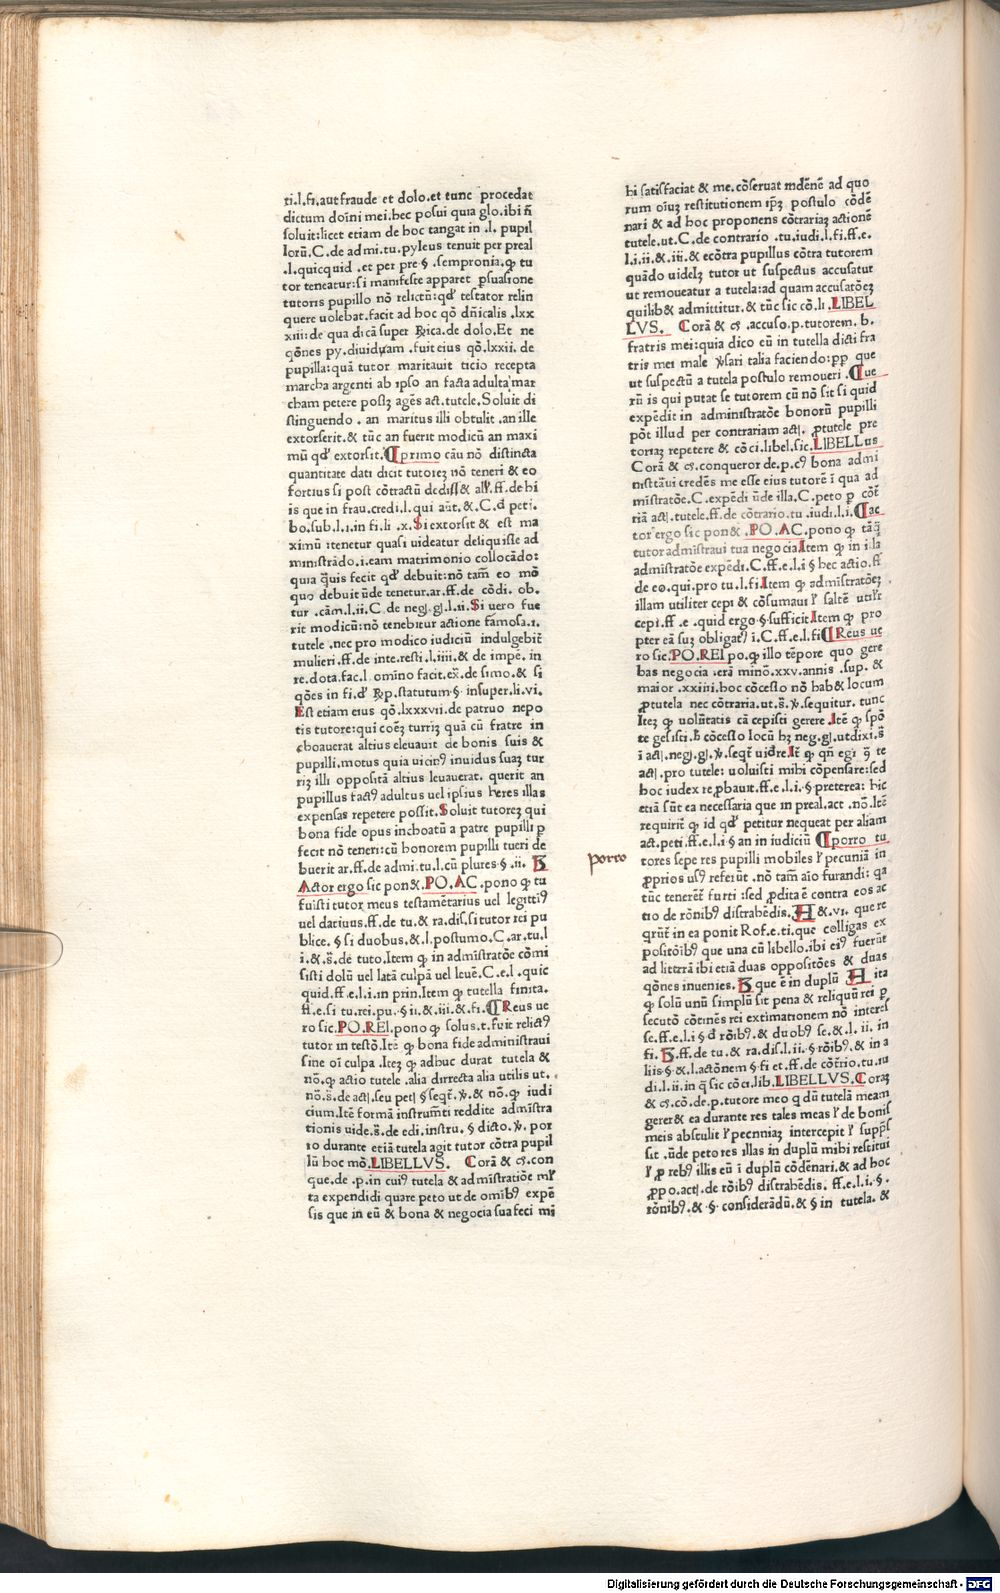 ti.l.fi.aut fraude et dolo.et tunc procedat
dictum doīni mei.hec posui quia glo.ibi n̄
soluit:licet etiam de hoc tangat in .l. pupil
lorū.C.de admi.tu.pyleus tenuit per preal
.l.quicquid .et per pre § .sempronia.ꝙ tu
tor teneatur:si manifeste apparet ꝑsuasione
tutoris pupillo nō relictū:qđ testator relin
quere uolebat.facit ad hoc qō dn̄icalis .lxx
xiiii:de qua dicā super R̃ica.de dolo.Et ne
qōnes py.diuidāam .fuit eius qō.lxxii.de
pupilla:quā tutor maritauit ticio recepta
marcha argenti ab ipso an facta adulta mar
cham petere possꝫ agēs act.tutele.Soluit di
stinguendo . an maritus illi obtulit .an ille
extorserit.& tūc an fuerit modicū an maxi
mū qđ extorsit.¶ primo cāu nō distincta
quantitate dati dicit tutorꝫ nō teneri & eo
fortius si post cōtractū dedisset & all'.ff.de hi
is que in frau.credi.l.qui aūt.& C.đ peti.
bo.sub.l.i.in fi.li .x.Si extorsit & est ma
ximū :tenetur quasi uideatur deliquisse ad
ministrādo.i.eam matrimonio collocādo:
quia q̄uis fecit qđ debuit:nō tam̄ eo mō
quo debuit ūde tenetur.ar.ff.de cōdi. ob.
tur .cām.l.ii.C.de negl.gl.l.ii.Si uero fue
rit modicū:nō tenebitur actione famosa.i.
tutele .nec pro modico iudiciū indulgebit̄
mulieri.ff.de inte.resti.l.iiii.& de impē. in
re.dota.fac.l omino facit.ex̄.de simo.& si
qōes in fi.đ R̃p.statutum.§. insuper.li.vi.
Est etiam eius qō.lxxxvii.de patruo nepo
tis tutore:qui coēꝫ turrīꝫ quā cū fratre in
choauerat altius eleuauit de bonis suis &
pupilli.motus quia uicinꝰ inuidus suaꝫ tur
rīꝫ illi oppositā altius leuauerat. querit an
pupillus factꝰ adultus uel ipsius heres illas
expensas repetere possit.Soluit tutorēꝫ qui
bona fide opus inchoatū a patre pupilli ꝑ
fecit nō teneri:cū honorem pupilli tueri de
buerit ar.ff.de admi.tu.l.cū plures.§ .ii.
Actor ergo sic pon&.PO.AC.pono ꝙ tu
fuisti tutor meus testamētarius uel legittiꝰ
uel datiuus.ff.de tu.& ra.dis.si tutor rei pu
blice. § si duobus.&.l.postumo.C.ar.tu.l
i.&.s̄.de tuto.Item ꝙ in admistratōe cōmi
sisti dolū uel latā culpā uel leuē.C.e.l .quic
quid.ff.e.l.i.in prin.Item ꝙ tutella finita.
ff.e.si tu.rei.pu.§ ii.&.iii.&.fi.¶ Reus ue
ro sic.PO.REI.pono ꝙ solus.t.fuit relictꝰ
tutor in testō.Itē ꝙ bona fide administraui
sine oī culpa .Itēꝫ ꝙ adhuc durat tutela &
nō.ꝙ actio tutele .alia dirrecta alia utilis ut.
nō.s̄.de act.seu peti §seqt̄.ꝟ.& nō.ꝙ iudi
cium.Itē formā instrum̄ti reddite admīstra
tionis uide.s̄.de edi.instru. § dicto.ꝟ. por
ro durante etiā tutela agit tutor cōtra pupil
lū hoc mō.LIBELLVS. Corā & cꝭ.con
que.de .p.in cuiꝰ tutela & admīstratiōe ml'
ta expendidi quare peto ut de omībꝰ expē
sis que in eū & bona & negocia sua feci mi
hi satisfaciat & me.cōseruat īndēnē ad quo
rum oīuꝫ restitutionem ip̄ꝫ postulo cōdē
nari & ad hoc proponens cōtrariaꝫ actionē
tutele.ut.C.de contrario .tu.iudi.l.fi.ff.e.
l.i.ii.&.iii.& ecōtra pupillus cōtra tutorem
quādo uidelꝫ tutor ut suspectus accusatur
ut remoueatur a tutela:ad quam accusatōeꝫ
quilib& admittitur.& tūc sic cō.li.LIBEL
LVS. Corā & cꝭ .accuso.p.tutorem. b.
fratris mei:quia dico eū in tutella dicti fra
tris mei male ꝟsari talia faciendo:pp que
ut suspectū a tutela postulo remoueri .¶ Ue
rū is qui putat se tutorem cū nō sit si quid
expēdit in administratōe bonorū pupilli
pōt illud per contrariam act. ꝑtutele pre
toriaꝫ repetere & cō ci.libel.sic.LIBELLus
Corā & cꝭ.conqueror de.p.cꝰ bona admi
nistrāui credēs me esse eius tutorē ī qua ad
mīstratōe.C.expēdi ūde illa.C.peto ꝑ cōt̄
riā act.tutele.ff.de cōtrario.tu.iudi.l.i.¶ Ac
tor ergo sic pon& .PO.AC.pono ꝙ tāq̄
tutor admistraui tua negocia.Item ꝙ in illa
admistratōe expēdi.C.ff.e.l.i § hec actio.ff
de eo.qui.pro tu.l.fi.Item ꝙ admistratōeꝫ
illam utiliter cepi & cōsumaui l' saltē utilr̄
cepi.ff.e .quid ergo.§.sufficit.Item ꝙ pro
pter eā suꝫ obligatꝰ ī.C.ff.e.l.fi.¶ Reus ue
ro sic.PO.REI po.ꝙ illo tēpore quo gere
bas negocia .erā mīnō.xxv.annis .sup. &
maior .xxiiii.hoc cōcesso nō hab& locum
ꝑtutela nec cōtraria.ut.s̄.ꝟ.sequitur. tunc
Itēꝫ ꝙ uolūtatis cā cepisti gerere.Itē ꝙ spō
te gessisti.h̄ cōcesso locū hꝫ neg.gl.ut dixi.s̄
ī act.negl.gl.ꝟ.seqt̄ uidre.It̄ ꝙ qn̄ egi ꝯ̄ te
act.pro tutele: uoluisti mihi cōpensare:sed
hoc iudex reꝓbauit.ff.e.l.i.§ preterea: hic
etiā sūt ea necessaria que in preal.act .nō.Itē
requirit̄ ꝙ id qđ petitur nequeat per aliam
act.peti.ff.e.l.i § an in iudiciū ¶ porro tu
porro
tores sepe res pupilli mobiles l' pecuniā in
ꝓprios usꝰ referūt .nō tam̄ aīo furandi: q̄a
tūc tenerēt̄ furti :sed ꝓdita ē contra eos ac
tio de rōnibꝰ distrahēdis. & .vi. que re
qrūt̄ in ea ponit Rof.e.ti.que colligas ex
positōibꝰ que una cū libello.ibi eiꝰ fuerūt
ad litterā ibi etiā duas oppositōes & duas
qōnes inuenies. que ē in duplū ita
ꝙ solū unū simplū sit pena & reliquū rei ꝑ
secutō cōtinēs rei extimationem nō interēs
se.ff.e.l.i § đ rōibꝰ.& duobꝰ se.& l. ii. in
fi. ff.de tu.& ra.dis.l.ii.§ rōibꝰ.& in a
liis.§.&.l.actōnem § fi et.ff.de cōtrio.tu.iu
di.l.ii.in q̄ sic cō ci.lib.LIBELLVS.Coraꝫ
& cꝭ.cō.de.p.tutore meo q dū tutelā meam
gerer& ea durante res tales meas l' de bonis
meis abstulit l' pecnniaꝫ intercepit l' supp̄s
sit .ūde peto res illas in duplū mihi restitui
l' ꝑ rebꝰ illis eū ī duplū cōdēnari.& ad hoc
ꝓpo.act.de rōibꝰ distrahēdis. ff.e.l.i.§.
rōnibꝰ.&.§. considerādū.& § in tutela. &
Digitalisierung gefördert durch die Deutsche Forschungsgemeinschaft - DFG